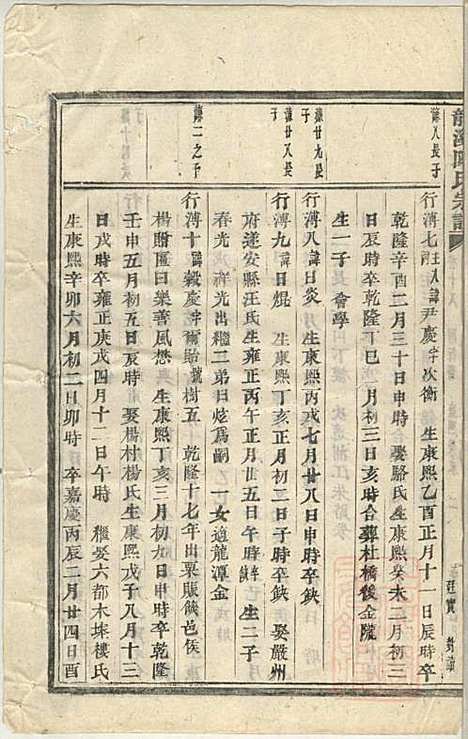 龍溪陳氏宗譜
諱人長子
行溥七諱尹慶字次衡 生康熙乙酉正月十一日辰時卒
乾隆辛酉二月三十日申時 娶駱氏生康熙癸未二月初三
日辰時卒乾隆丁巳 月初三日亥時合葬杜橋後金院
生一子 會學
諱廿九長子
行溥八諱日炎 生康熙丙戌七月廿八日申時卒缺
諱廿八長子
行溥九諱日焜 生康熙丁亥正月初二日子時卒缺 娶嚴州
府遂安縣汪氏生雍正丙午正月廿五日午時卒缺 生二子
春光 祥光出繼二弟日炫爲嗣 一女適龍潭金
諱二之子
行溥十諱穀慶字爾貽號樹五 乾隆十七年出粟賑饑邑侯
楊贈匾曰樂善風懋 生康熙丁亥三月初九日申時卒乾隆
壬申五月初五日辰時 娶楊村楊氏生康熙戊子八月十三
日戌時卒雍正庚戌四月十二日午時 繼娶六都木埰樓氏
生康熙辛卯六月初二日卯時 卒嘉慶丙辰二月廿四日酉